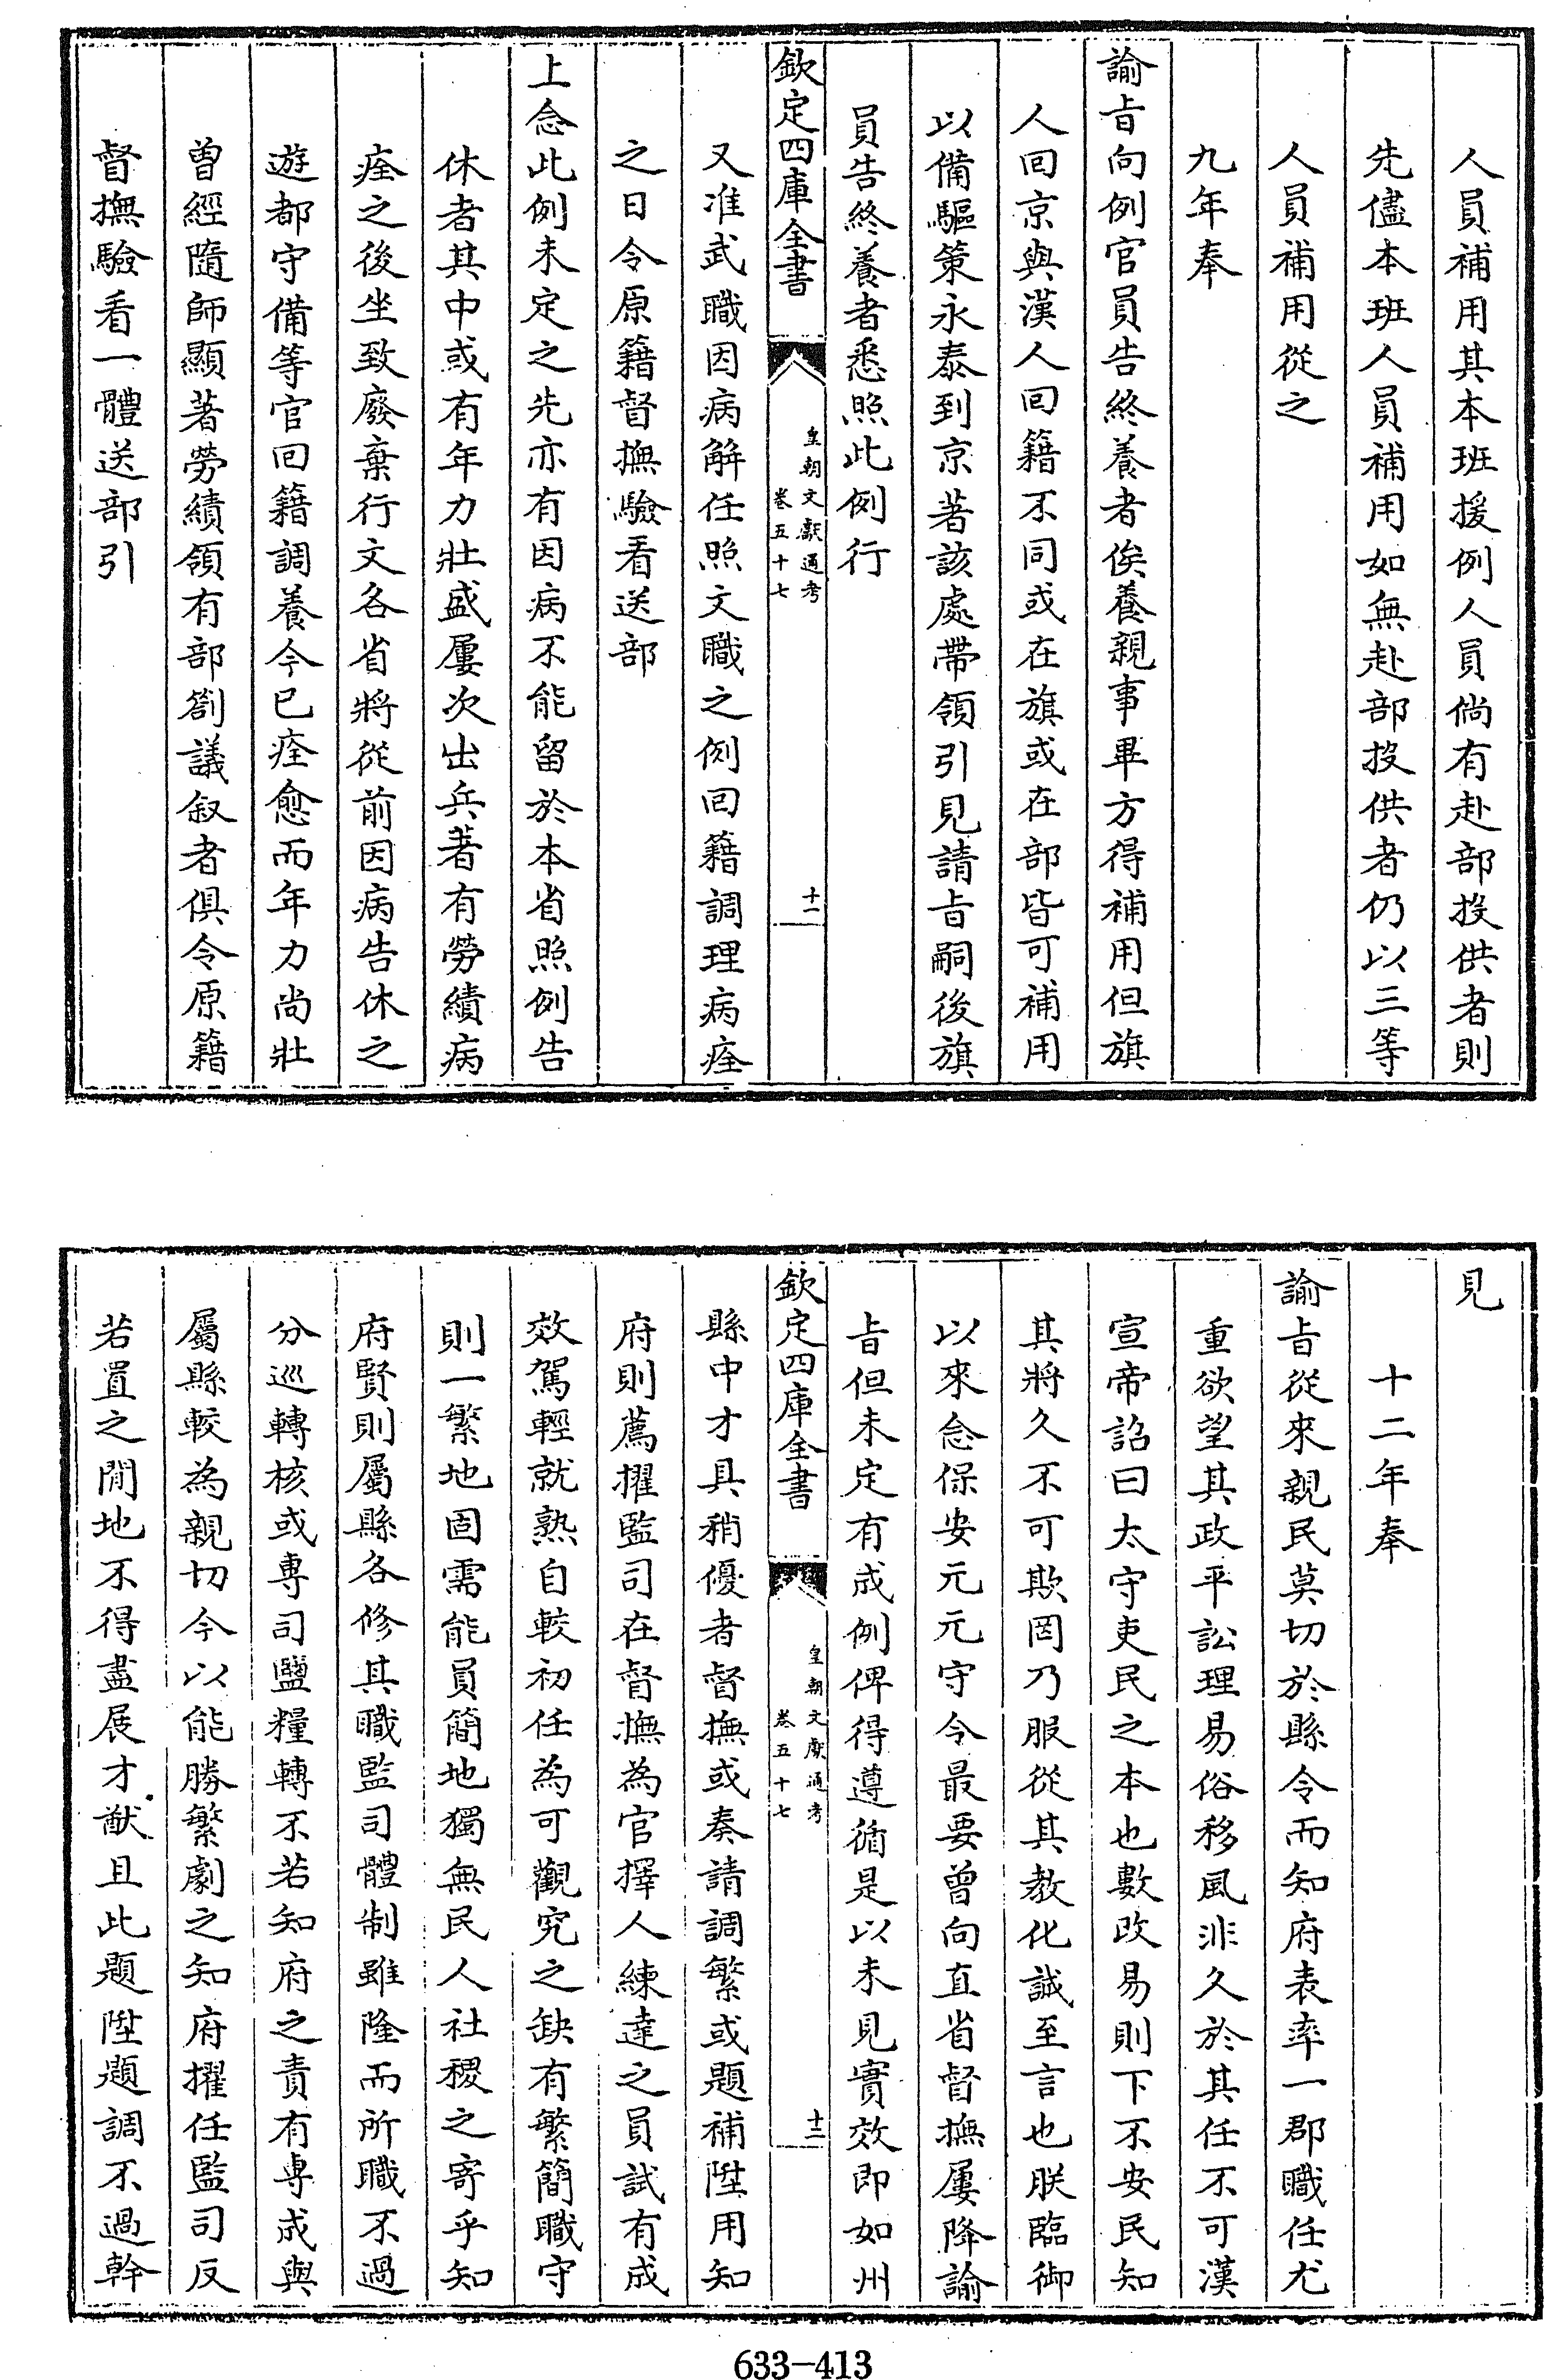 人員補用其本班援例人員倘有赴部投供者則
先儘本班人員補用如無赴部投供者仍以三等
人員補用從之
九年奉
諭旨向例官員告終養者俟養親事畢方得補用但旗
人回京與漢人回籍不同或在旗或在部皆可補用
以備驅策永泰到京著該處帶領引見請旨嗣後旗
員告終養者悉照此例行
欽定四庫全書
皇朝文獻通考
卷五十七
十一
又准武職因病解任照文職之例回籍調理病痊
之日令原籍督撫驗看送部
上念此例未定之先亦有因病不能留於本省照例告
休者其中或有年力壯盛屢次出兵著有勞績病
痊之後坐致廢棄行文各省將從前因病告休之
遊都守備等官回籍調養今已痊愈而年力尚壯
曾經隨師顯著勞績領有部劄議叙者俱令原籍
督撫驗看一體送部引
見
十二年奉
諭旨從來親民莫切於縣令而知府表率一郡職任尤
重欲望其政平訟理易俗移風非久於其任不可漢
宣帝詔曰太守吏民之本也數改易則下不安民知
其將久不可欺罔乃服從其教化誠至言也朕臨御
以來念保安元元守令最要曾向直省督撫屢降諭
旨但未定有成例俾得遵循是以未見實效即如州
欽定四庫全書
皇朝文獻通考
卷五十七
十二
縣中才具稍優者督撫或奏請調繁或題補陞用知
府則薦擢監司在督撫為官擇人練達之員試有成
效駕輕就熟自較初任為可觀究之缺有繁簡職守
則一繁地固需能員簡地獨無民人社稷之寄乎知
府賢則屬縣各修其職監司體制雖隆而所職不過
分巡轉核或專司鹽糧轉不若知府之責有專成與
屬縣較為親切今以能勝繁劇之知府擢任監司反
若置之閒地不得盡展才猷且此題陞題調不過幹
633-413